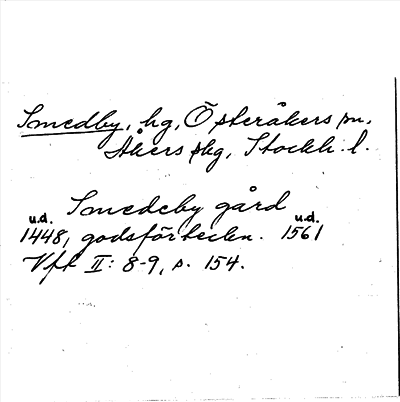 Smedby, hg, Österåkers sn,
Åkers skg, Stockh. l.
Smedeby gård
u.d. u.d.
1448, godsförteckn. 1561
Vft II: 8-9, s. 154.